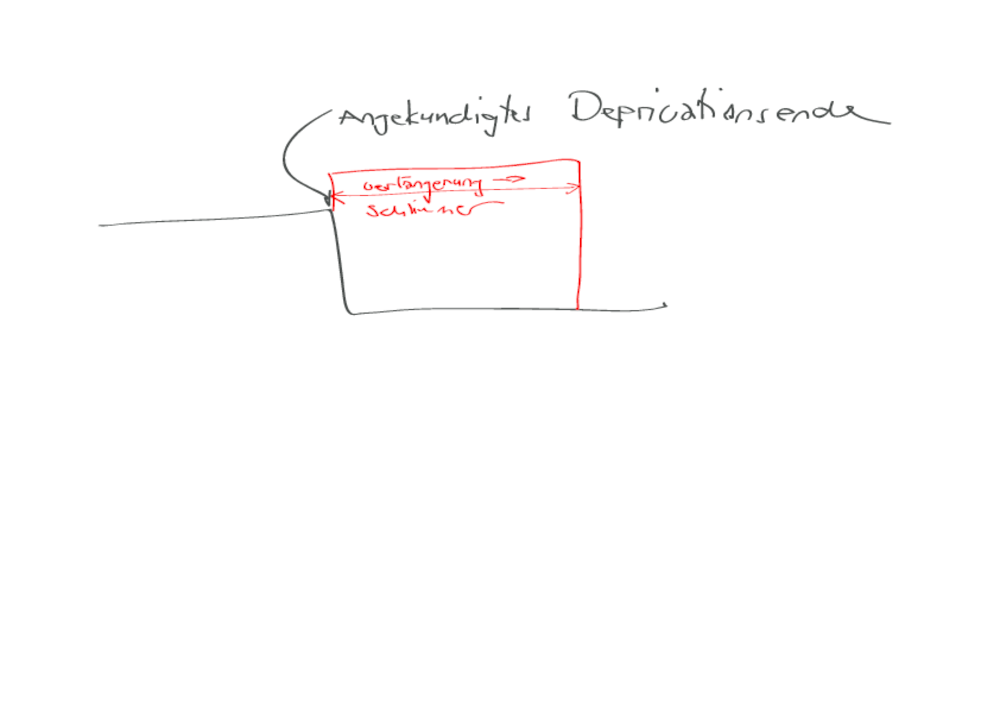 Angekundigtes Deprications ende
verlängerung →
Schlimmer